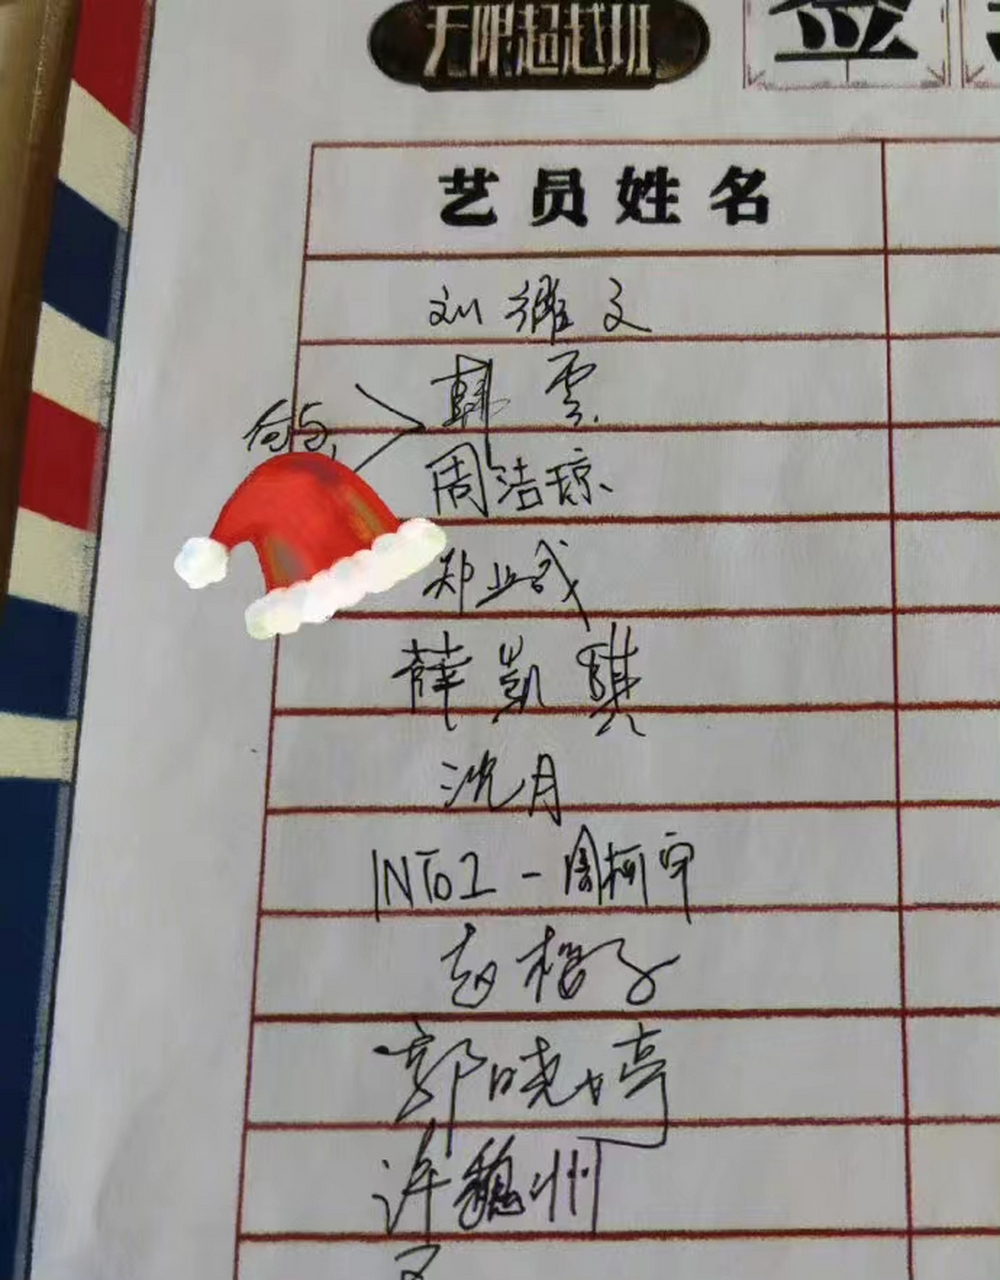 无限超越班
签
艺员姓名
刘维文
韩雪
周洁琼
郑业成
薛凯琪
沈月
INTO1-周柯宇
赵樱子
郭晓婷
许魏洲